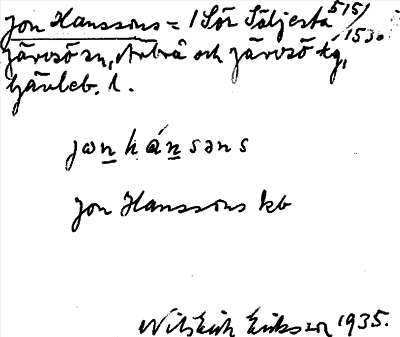 Jon Hanssons = 1 Sör Säljesta 5151/1530
Järvsö sn, Arbrå och Järvsö tg,
Gävleb. l.
jωn hánsəns
Jon Hanssons kb
Nils Erik Eriksson 1935.